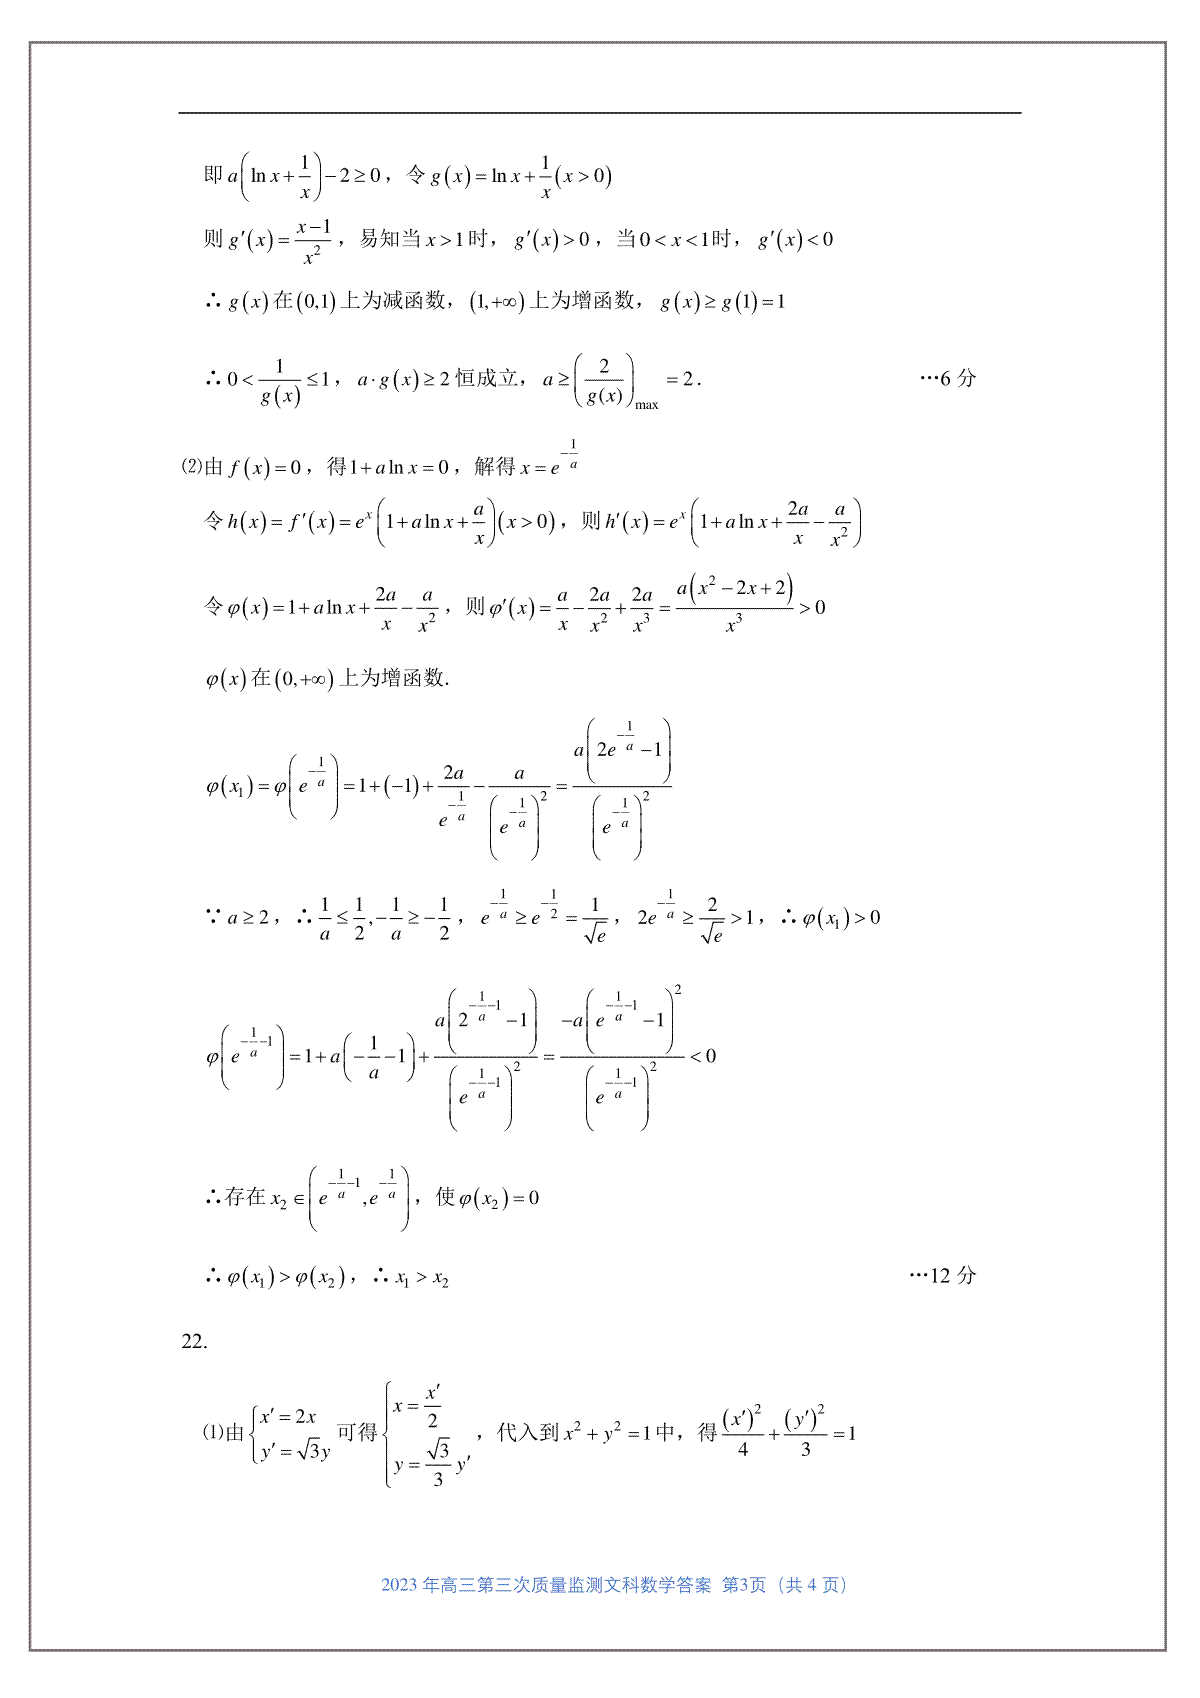 即 a(ln x + 1/x) − 2 ≥ 0，令 g(x) = ln x + 1/x (x > 0)
则 g′(x) = (x−1)/x²，易知当 x > 1时，g′(x) > 0，当 0 < x < 1时，g′(x) < 0
∴ g(x) 在 (0,1) 上为减函数，(1,+∞) 上为增函数，g(x) ≥ g(1) = 1
∴ 0 < 1/g(x) ≤ 1，a·g(x) ≥ 2 恒成立，a ≥ (2/g(x))_max = 2. …6 分
⑵由 f(x) = 0，得 1 + a ln x = 0，解得 x = e^(−1/a)
令 h(x) = f′(x) = e^x(1 + a ln x + a/x)(x > 0)，则 h′(x) = e^x(1 + a ln x + 2a/x − a/x²)
令 φ(x) = 1 + a ln x + 2a/x − a/x²，则 φ′(x) = a/x − 2a/x² + 2a/x³ = a(x² − 2x + 2)/x³ > 0
φ(x) 在 (0,+∞) 上为增函数.
φ(x₁) = φ(e^(−1/a)) = 1 + (−1) + 2a/e^(−1/a) − a/(e^(−1/a))² = a(2e^(−1/a) − 1)/(e^(−1/a))²
∵ a ≥ 2，∴ 1/a ≤ 1/2, −1/a ≥ −1/2，e^(−1/a) ≥ e^(−1/2) = 1/√e，2e^(−1/a) ≥ 2/√e > 1，∴ φ(x₁) > 0
φ(e^(−1/a−1)) = 1 + a(−1/a − 1) + a(2^(−1/a−1) − 1)/(e^(−1/a−1))² = −a(e^(−1/a−1) − 1)²/(e^(−1/a−1))² < 0
∴存在 x₂ ∈ (e^(−1/a−1), e^(−1/a))，使 φ(x₂) = 0
∴ φ(x₁) > φ(x₂)，∴ x₁ > x₂ …12 分
22.
⑴由 {x′ = 2x, y′ = √3y 可得 {x = x′/2, y = (√3/3)y′，代入到 x² + y² = 1中，得 (x′)²/4 + (y′)²/3 = 1
2023 年高三第三次质量监测文科数学答案 第3页（共 4 页）